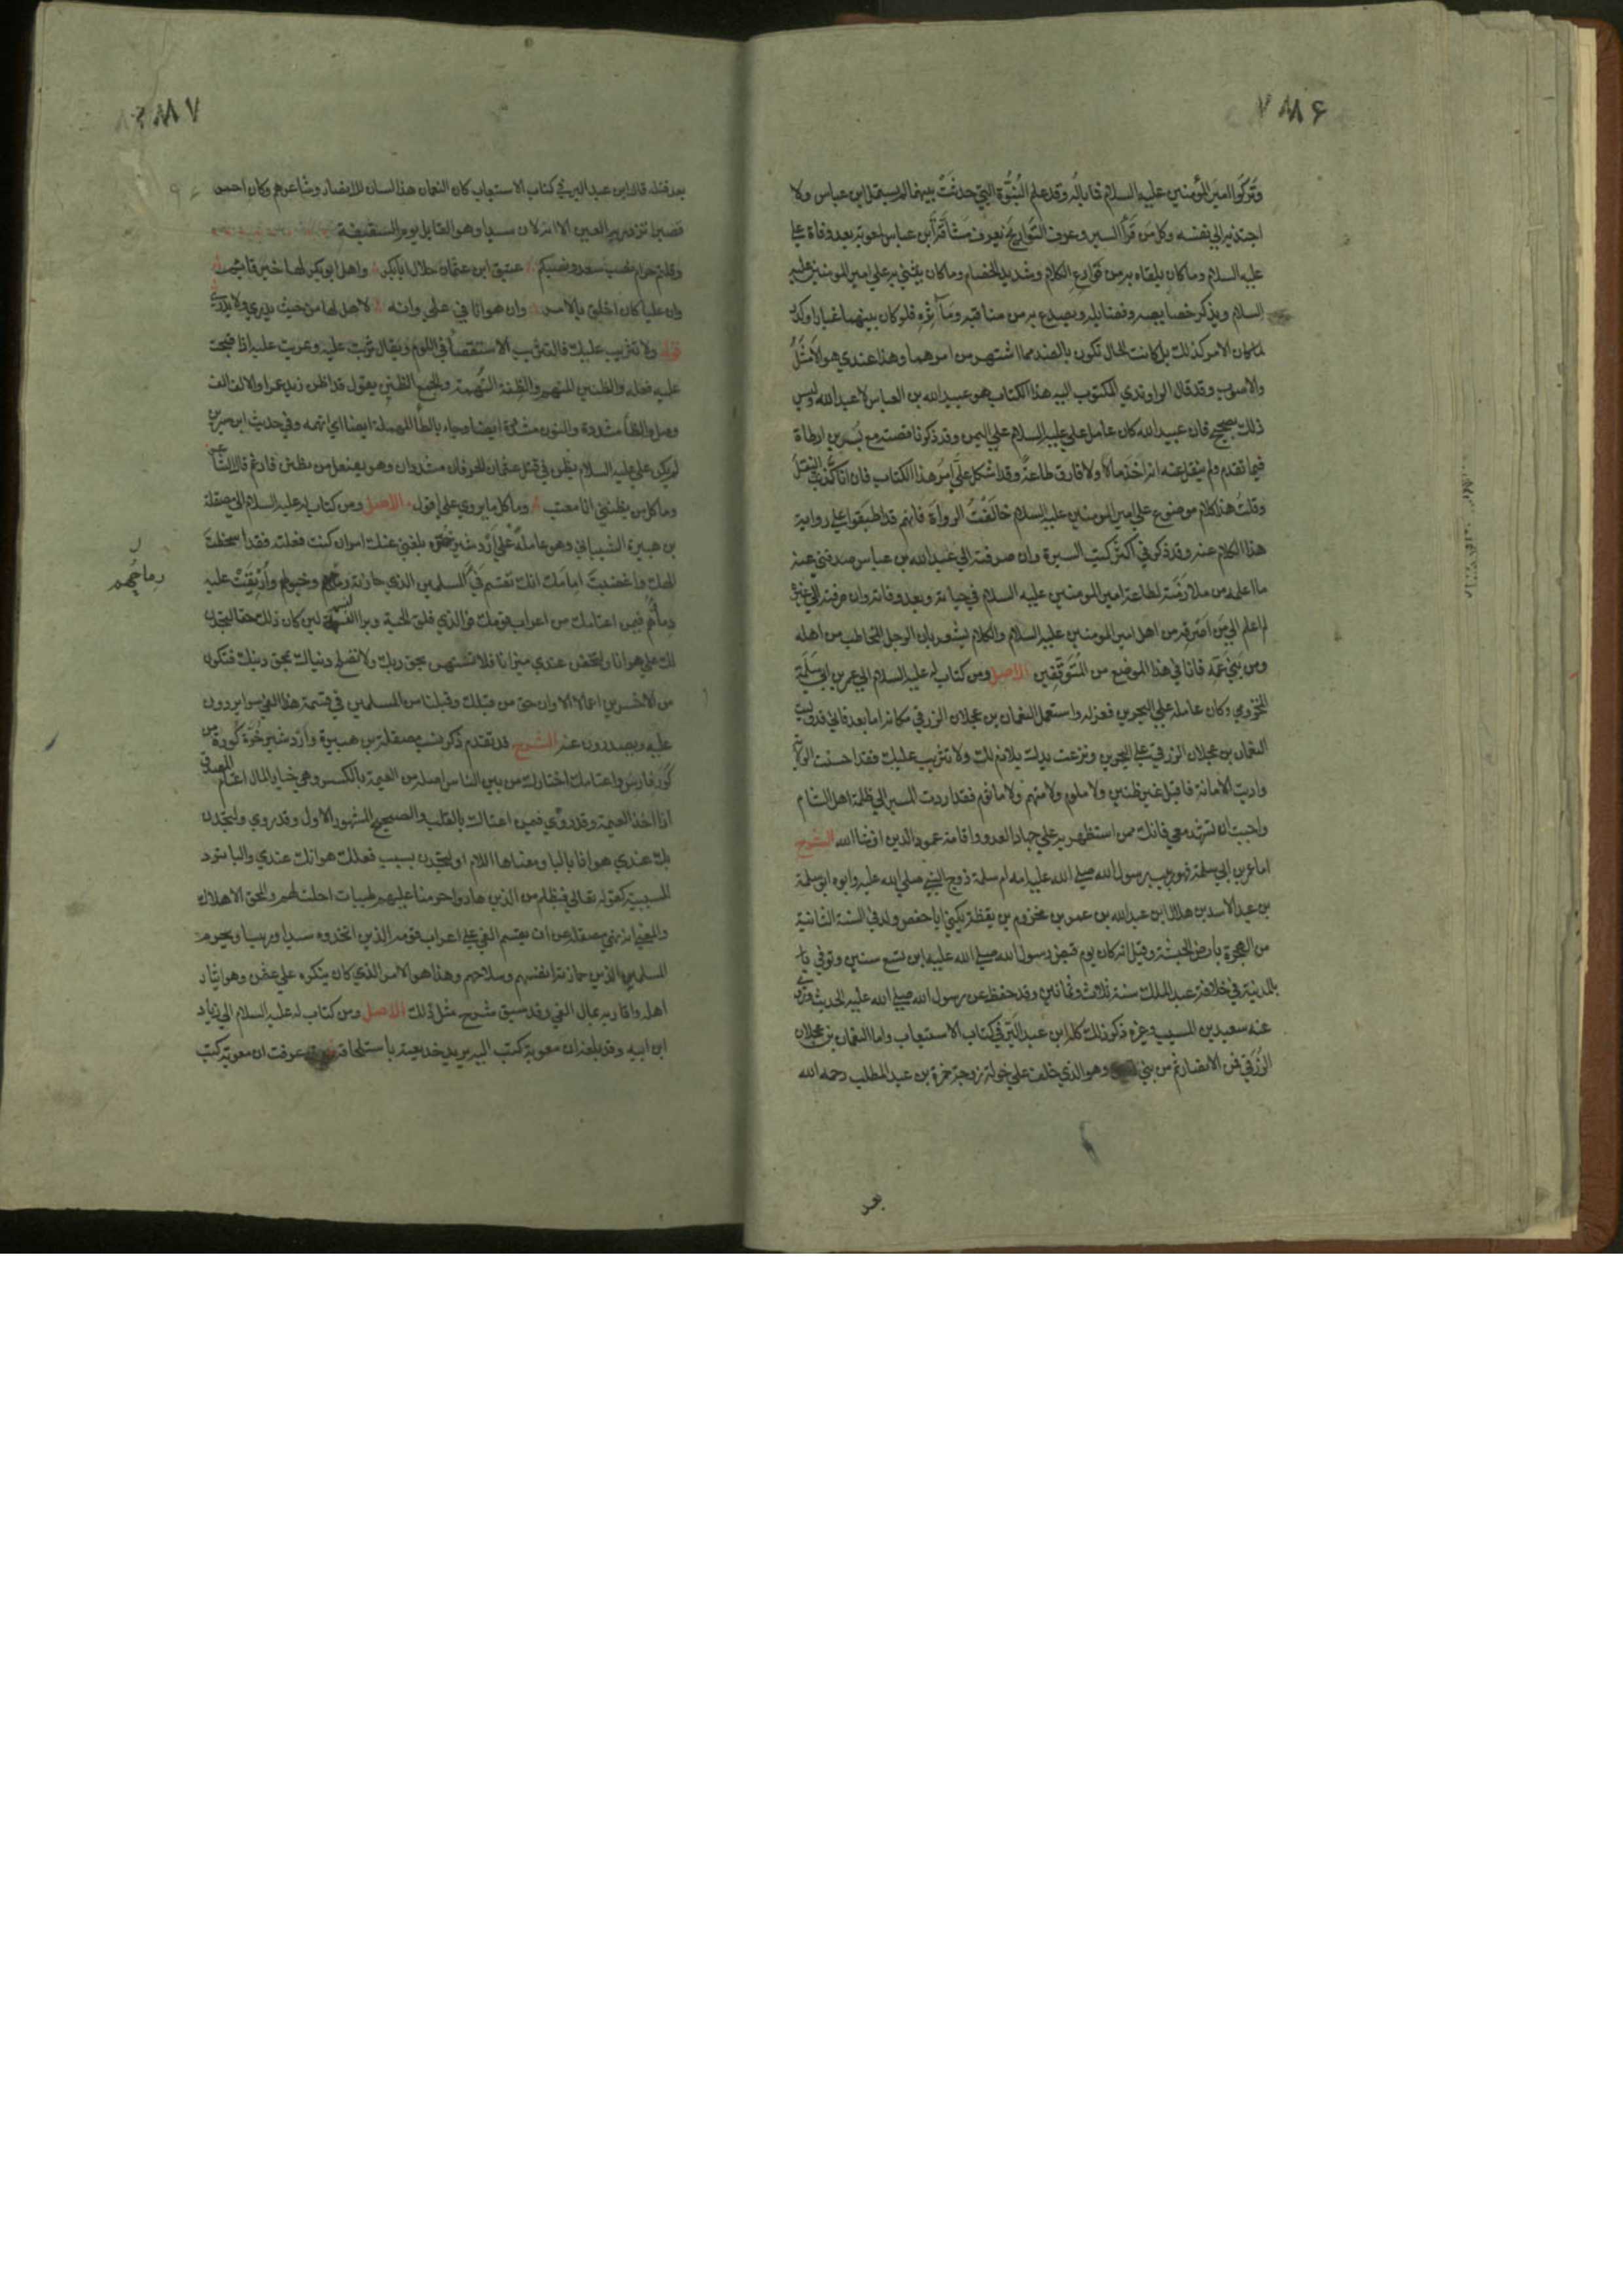 ٧٨٨٤
وتركوا امير المؤمنين عليه السلام فما باله وقد علم النبوة التي حدثت بينهما لم يستمل ابن عباس ولا
اجتذبه الي نفسه وكل من قرأ السير وعرف التواريخ يعرف مشاقة ابن عباس لمعوية بعد وفاة علي
عليه السلام وما كان يلقاه به من قوارع الكلام وشديد الخصام وما كان يثني به علي امير المومنين عليه
السلام ويذكر خصايصه وفضايله ويصدع به من مناقبه ومآثره فلو كان بينهما غبار او كدر
لما كان الامر كذلك بل كانت الحال تكون بالضد مما اشتهر من امرهما وهذا عندي هو الامثل
والاصوب وقد قال الراوندي المكتوب اليه هذا الكتاب هو عبيد الله بن العباس لا عبد الله وليس
ذلك بصحيح فان عبيد الله كان عامل علي عليه السلام علي اليمن وقد ذكرنا قصته مع بسر بن ارطاة
فيما تقدم ولم ينقل عنه انه اخذ مالا ولا فارق طاعة وقد اشكل علي امر هذا الكتاب فان انا كذبت النقل
وقلت هذا كلام موضوع علي امير المومنين عليه السلام خالفت الرواة فانهم قد اطبقوا علي رواية
هذا الكلام عنه وقد ذكر في اكثر كتب السيرة وان صرفته الي عبد الله بن عباس صدني عنه
ما اعلمه من ملازمته لطاعة امير المومنين عليه السلام في حياته وبعد وفاته وان صرفته الي غيره
لم اعلم الي من اصرفه من اهل امير المومنين عليه السلام والكلام يشعر بان الرجل المخاطب من اهله
ومن بني عمه فانا في هذا الموضع من المتوقفين الاصل ومن كتاب له عليه السلام الي عمر بن ابي سلمة
المخزومي وكان عامله علي البحرين فعزله واستعمل النعمان بن عجلان الزرقي مكانه اما بعد فاني قد وليت
النعمان بن عجلان الزرقي علي البحرين ونزعت يدك بلا ذم لك ولا تثريب عليك فقد احسنت الولاية
واديت الامانة فاقبل غير ظنين ولا ملوم ولا متهم ولا ماثوم فقد اردت المسير الي ظلمة اهل الشام
واحببت ان تشهد معي فانك ممن استظهر به علي جهاد العدو واقامة عمود الدين ان شا الله الشرح
اما عمر بن ابي سلمة فهو ربيب رسول الله صلي الله عليه امه ام سلمة زوج النبي صلي الله عليه وابوه ابو سلمة
بن عبد الاسد بن هلال بن عبد الله بن عمر بن مخزوم بن يقظة يكني ابا حفص ولد في السنة الثانية
من الهجرة بأرض الحبشة وقيل انه كان يوم قبض رسول الله صلي الله عليه ابن تسع سنين وتوفي
بالمدينة في خلافة عبد الملك سنة ثلاث وثمانين وقد حفظ عن رسول الله صلي الله عليه الحديث وروي
عنه سعيد بن المسيب وغيره ذكر ذلك كله ابن عبد البر في كتاب الاستيعاب واما النعمان بن عجلان
الزرقي فمن الانصار ثم من بني وهو الذي خلف علي خولة زوجة حمزة بن عبد المطلب رحمه الله
بعد
٧٨٨٧
بعد قتله قال ابن عبد البر في كتاب الاستيعاب كان النعمان هذا لسان الانصار وشاعرهم وكان احمر
قصيرا تزدريه العين الا انه كان سيدا وهو القايل يوم السقيفة
وقلتم حرام نصب سعد ونصبكم عتيق ابن عثمان حلال ابا بكر واهل ابو بكر لها خير قايم
وان عليا كان اخلق بالامر وان هوانا في علي وانه لاهل لها من حيث يدري ولا يدري
قوله ولا تثريب عليك فالتثريب الاستقصا في اللوم ويقال ثربت عليه وعربت عليه اذا قبحت
عليه فعله والظنين المتهم والظنة التهمة والجمع الظنن يقول قد اظن زيد عمرا والالف الف
وصل والظا مشددة والنون مشددة ايضا وجاء بالطا المهملة ايضا اي اتهمه وفي حديث ابن سيرين
لم يكن علي عليه السلام يظن في قتل عثمان الحرفان مشددان وهو يفتعل من يظنن فادغم قال الشاعر
وما كل من يظنني انا معتب وما كل ما يروي علي اقول الاصل ومن كتاب له عليه السلام الي مصقلة
بن هبيرة الشيباني وهو عامله علي اردشير خرة بلغني عنك امر ان كنت فعلته فقد اسخطت
الهك واغضبت امامك انك تقسم في المسلمين الذي حازته رماحهم وخيولهم واريقت عليه
رماحهم
دماؤهم فيمن اعتامك من اعراب قومك فوالذي فلق الحبة وبرا النسمة لين كان ذلك حقا لتجدن
لك علي هوانا ولتخفن عندي ميزانا فلا تستهن بحق ربك ولا تصلح دنياك بمحق دينك فتكون
من الاخسرين اعمالا الا وان حق من قبلك وقبلنا من المسلمين في قسمة هذا الفي سوا يردون
عليه ويصدرون عنه الشرح قد تقدم ذكر نسب مصقلة بن هبيرة واردشير خرة كورة من
كور فارس واعتامك اختارك من بين الناس اصله من العيمة بالكسر وهي خيار المال اعتام المصدق
اذا اخذ العيمة وقد روي فيمن اعتماك بالقلب والصحيح المشهور الاول وقد روي ولتجدن
بك عندي هوانا بالبا ومعناها اللام او لتجدن بسبب فعلك هوانك عندي والبا ترد
للسببية كقوله تعالي فبظلم من الذين هادوا حرمنا عليهم طيبات احلت لهم والمحق الاهلاك
والمعني انه نهي مصقلة عن ان يقسم الفي علي اعراب قومه الذين اتخذوه سيدا ورييسا ويحرمه
المسلمين الذين حازته انفسهم وسلاحهم وهذا هو الامر الذي كان ينكره علي عثمن وهو ايثار
اهله واقاربه بمال الفي وقد سبق شرح مثل ذلك الاصل ومن كتاب له عليه السلام الي زياد
ابن ابيه وقد بلغه ان معوية كتب اليه يريد خديعته باستلحاقه عرفت ان معوية كتب